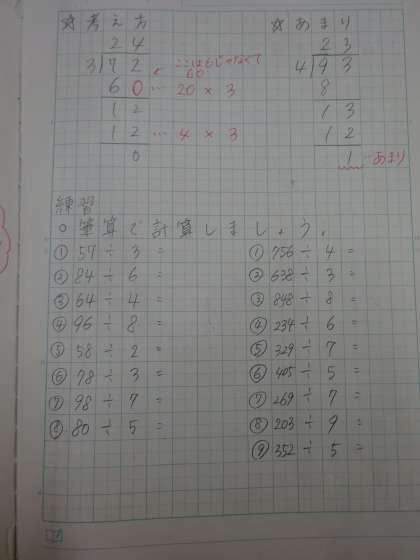 ☆考え方
24
3)72
ここは6じゃなくて
60
60 … 20×3
12
12 … 4×3
0
☆あまり
23
4)93
8
13
12
1 あまり
練習
○筆算で計算しましょう。
① 57÷3=
② 84÷6=
③ 64÷4=
④ 96÷8=
⑤ 58÷2=
⑥ 78÷3=
⑦ 98÷7=
⑧ 80÷5=
① 756÷4=
② 638÷3=
③ 848÷8=
④ 234÷6=
⑤ 329÷7=
⑥ 405÷5=
⑦ 269÷7=
⑧ 203÷9=
⑨ 352÷5=